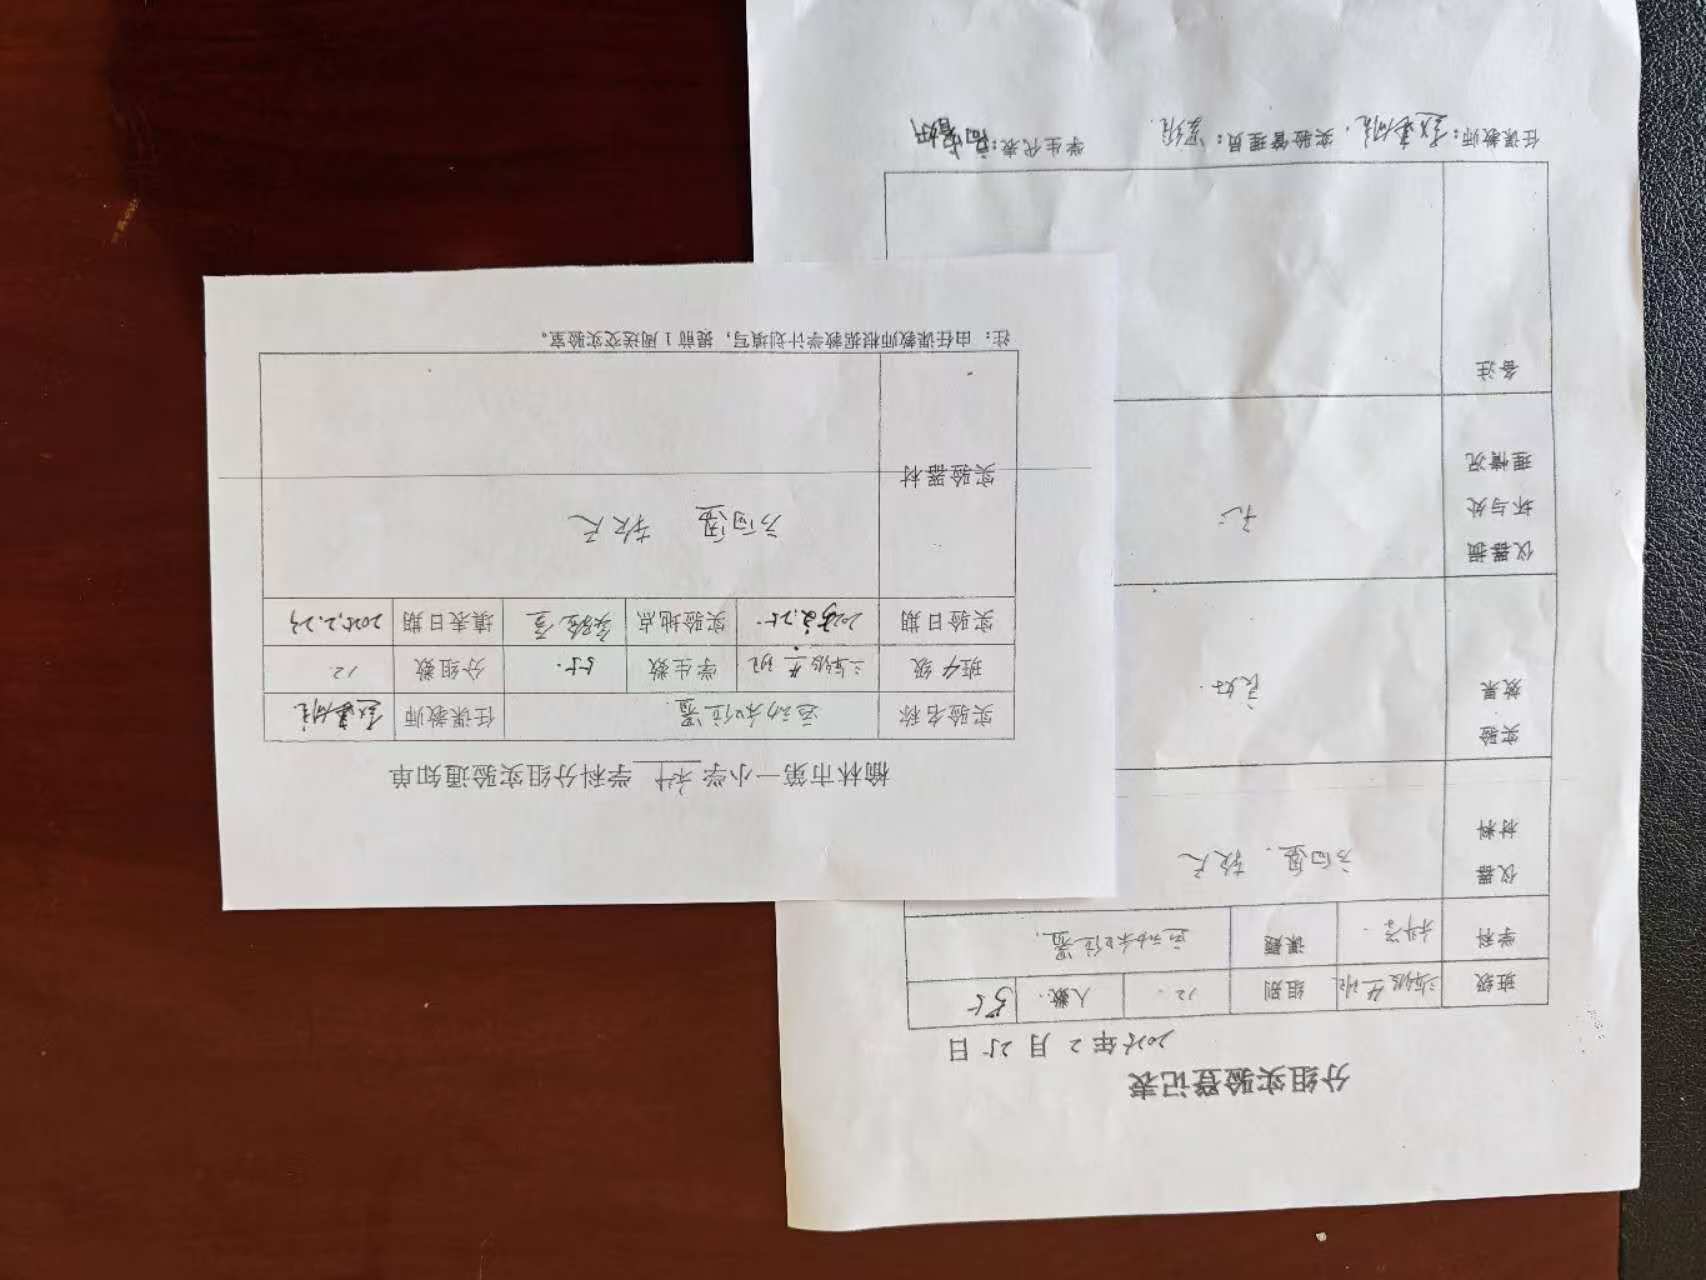 榆林市第一小学 科 学科分组实验通知单
实验名称 运动和位置 任课教师
班级 三年级 班 学生数 55 分组数 12
实验日期 2025.2.25 实验地点 实验室 填表日期 2025.2.23
实验器材 方向盘 软尺
注：由任课教师根据教学计划填写，提前1周送交实验室。
分组实验登记表
2025年2月25日
班级 三年级 班 组别 12 人数 55
学科 科学 课题 运动和位置
仪器材料 方向盘 软尺
实验效果 良好
仪器损坏与处理情况 无
备注
任课教师： 实验管理员： 学生代表：